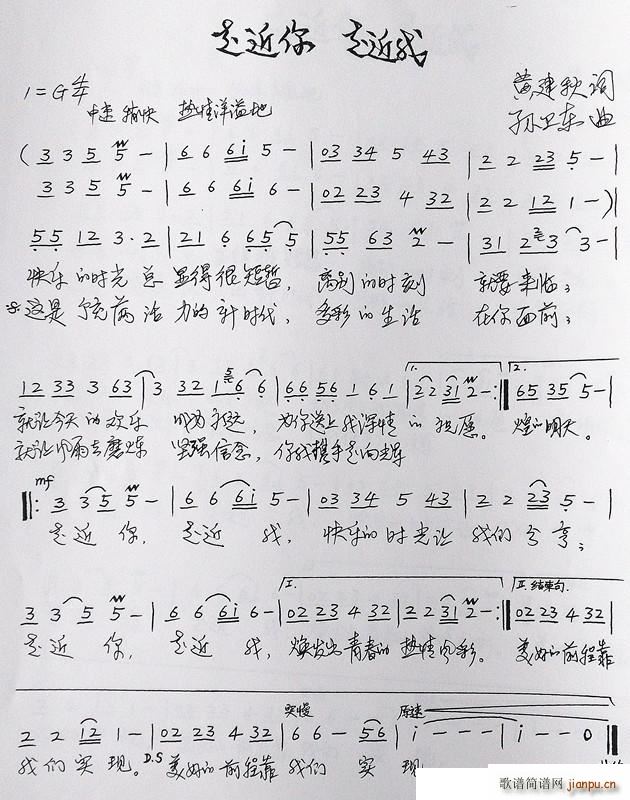 走近你 走近我
1=G 4/4
中速 稍快 热情洋溢地
黄建秋 词
孙卫东 曲
(3 3 5 5 - | 6 6 6i 5 - | 03 34 5 43 | 2 2 23 5 - |
3 3 5 5 - | 6 6 6i 6 - | 02 23 4 32 | 2 2 12 1 -)|
55 12 3·2 | 21 6 65 5 | 55 63 2 - | 31 2 3 3 - |
快乐的时光总 显得很短暂, 离别的时刻 就要来临;
这是个充满活力的新时代, 多彩的生活 在你面前;
12 33 3 63 | 3 32 1 6 6 | 66 56 1 61 | 1. 22 31 2 - :| 2. 65 35 5 - |
就让今天的欢乐 成为永远, 为你送上我深情的祝愿。 煌的明天。
就让风雨去磨炼 坚强信念, 你我携手走向光辉
mf
|: 3 3 5 5 - | 6 6 6i 5 - | 03 34 5 43 | 2 2 23 5 - |
走近你, 走近我, 快乐的时光让我们分享;
3 3 5 5 - | 6 6 6i 6 - | I. 02 23 4 32 | 2 2 31 2 - :| II. 结束句. 02 23 4 32 |
走近你, 走近我, 焕发出青春的热情风彩。 美好的前程靠
突慢 原速
2 2 12 1 - | 02 23 4 32 | 6 6 - 56 | i - - - | i - - 0 ||
我们实现。D.S 美好的前程靠我们 实现
歌谱简谱网
jianpu.cn